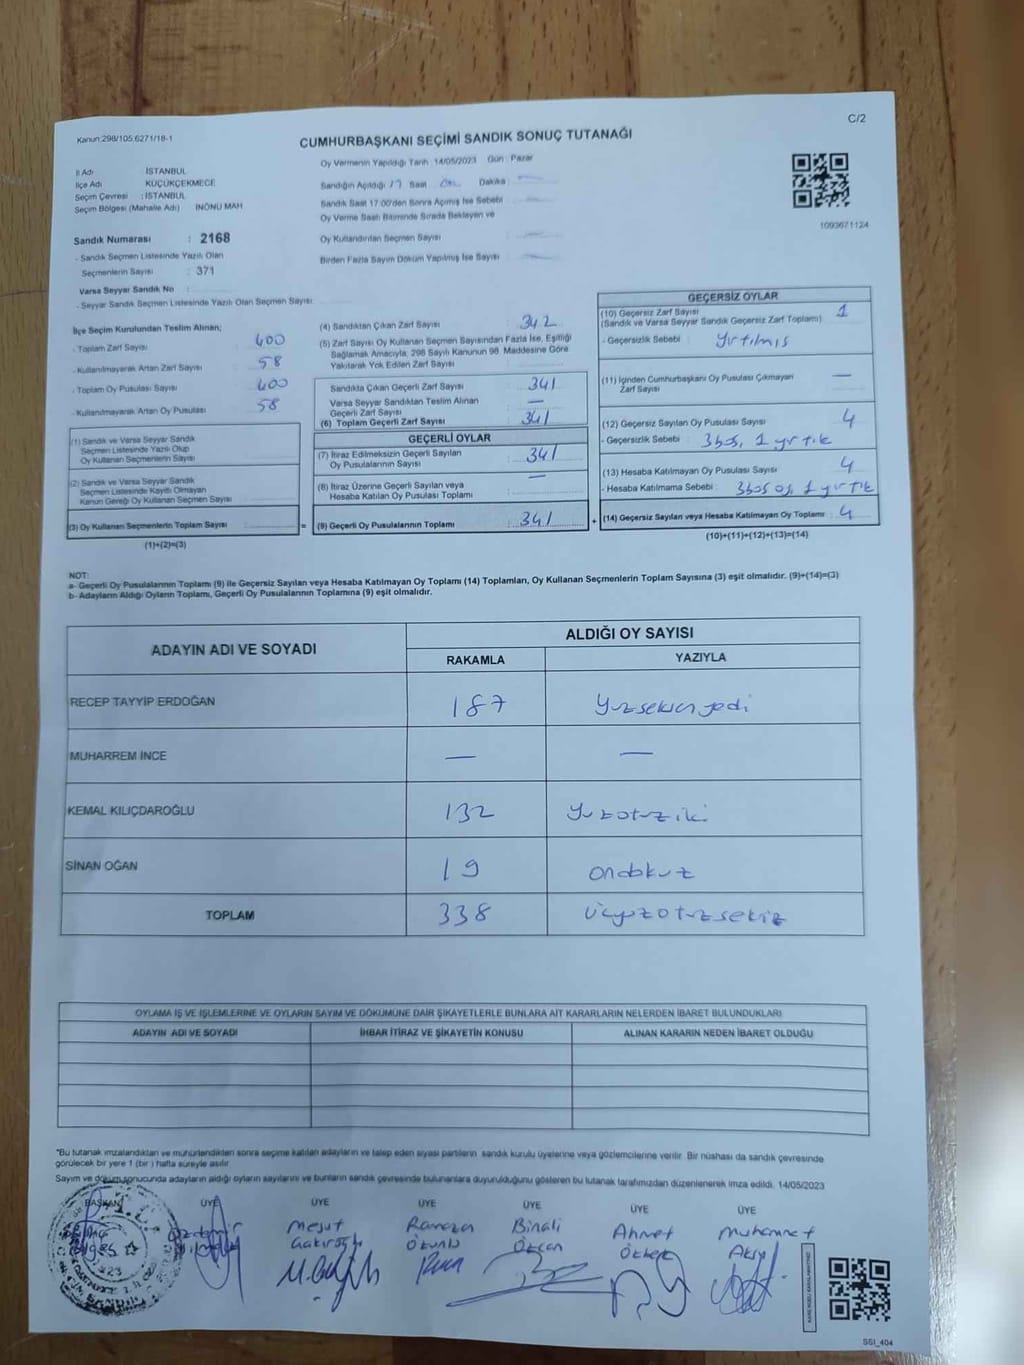 C/2
Kanun:298/105,6271/18-1
CUMHURBAŞKANI SEÇİMİ SANDIK SONUÇ TUTANAĞI
Oy Vermenin Yapıldığı Tarih :14/05/2023 Gün : Pazar
İl Adı İSTANBUL
İlçe Adı KÜÇÜKÇEKMECE
Seçim Çevresi : İSTANBUL
Seçim Bölgesi (Mahalle Adı) İNÖNÜ MAH
Sandığın Açıldığı 17 Saat Dakika :
Sandık Saat 17.00'den Sonra Açılmış İse Sebebi
Oy Verme Saati Bitiminde Sırada Bekleyen ve
Oy Kullandırılan Seçmen Sayısı
Birden Fazla Sayım Döküm Yapılmış İse Sayısı
1093671124
Sandık Numarası : 2168
- Sandık Seçmen Listesinde Yazılı Olan
Seçmenlerin Sayısı : 371
Varsa Seyyar Sandık No :
- Seyyar Sandık Seçmen Listesinde Yazılı Olan Seçmen Sayısı:
İlçe Seçim Kurulundan Teslim Alınan;
- Toplam Zarf Sayısı 400
- Kullanılmayarak Artan Zarf Sayısı 58
- Toplam Oy Pusulası Sayısı 400
- Kullanılmayarak Artan Oy Pusulası 58
(1) Sandık ve Varsa Seyyar Sandık
Seçmen Listesinde Yazılı Olup
Oy Kullanan Seçmenlerin Sayısı
(2) Sandık ve Varsa Seyyar Sandık
Seçmen Listesinde Kayıtlı Olmayan
Kanun Gereği Oy Kullanan Seçmen Sayısı
(3) Oy Kullanan Seçmenlerin Toplam Sayısı : =
(1)+(2)=(3)
(4) Sandıktan Çıkan Zarf Sayısı : 342
(5) Zarf Sayısı Oy Kullanan Seçmen Sayısından Fazla İse, Eşitliği
Sağlamak Amacıyla, 298 Sayılı Kanunun 98. Maddesine Göre
Yakılarak Yok Edilen Zarf Sayısı
Sandıkta Çıkan Geçerli Zarf Sayısı : 341
Varsa Seyyar Sandıktan Teslim Alınan
Geçerli Zarf Sayısı : —
(6) Toplam Geçerli Zarf Sayısı : 341
GEÇERLİ OYLAR
(7) İtiraz Edilmeksizin Geçerli Sayılan
Oy Pusulalarının Sayısı : 341
(8) İtiraz Üzerine Geçerli Sayılan veya
Hesaba Katılan Oy Pusulası Toplamı : —
(9) Geçerli Oy Pusulalarının Toplamı : 341 +
GEÇERSİZ OYLAR
(10) Geçersiz Zarf Sayısı
(Sandık ve Varsa Seyyar Sandık Geçersiz Zarf Toplamı) : 1
- Geçersizlik Sebebi : Yırtılmış
(11) İçinden Cumhurbaşkanı Oy Pusulası Çıkmayan
Zarf Sayısı : —
(12) Geçersiz Sayılan Oy Pusulası Sayısı : 4
- Geçersizlik Sebebi : 3 boş, 1 yırtık
(13) Hesaba Katılmayan Oy Pusulası Sayısı : 4
- Hesaba Katılmama Sebebi : 3 boş oy, 1 yırtık
(14) Geçersiz Sayılan veya Hesaba Katılmayan Oy Toplamı : 4
(10)+(11)+(12)+(13)=(14)
NOT:
a- Geçerli Oy Pusulalarının Toplamı (9) ile Geçersiz Sayılan veya Hesaba Katılmayan Oy Toplamı (14) Toplamları, Oy Kullanan Seçmenlerin Toplam Sayısına (3) eşit olmalıdır. (9)+(14)=(3)
b- Adayların Aldığı Oyların Toplamı, Geçerli Oy Pusulalarının Toplamına (9) eşit olmalıdır.
ADAYIN ADI VE SOYADI
ALDIĞI OY SAYISI
RAKAMLA YAZIYLA
RECEP TAYYİP ERDOĞAN 187 Yüzseksenyedi
MUHARREM İNCE — —
KEMAL KILIÇDAROĞLU 132 Yüzotuziki
SİNAN OĞAN 19 ondokuz
TOPLAM 338 Üçyüzotuzsekiz
OYLAMA İŞ VE İŞLEMLERİNE VE OYLARIN SAYIM VE DÖKÜMÜNE DAİR ŞİKAYETLERLE BUNLARA AİT KARARLARIN NELERDEN İBARET BULUNDUKLARI
ADAYIN ADI VE SOYADI İHBAR İTİRAZ VE ŞİKAYETİN KONUSU ALINAN KARARIN NEDEN İBARET OLDUĞU
*Bu tutanak imzalandıktan ve mühürlendikten sonra seçime katılan adayların ve talep eden siyasi partilerin sandık kurulu üyelerine veya gözlemcilerine verilir. Bir nüshası da sandık çevresinde
görülecek bir yere 1 (bir ) hafta süreyle asılır.
Sayım ve döküm sonucunda adayların aldığı oyların sayılarını ve bunların sandık çevresinde bulunanlara duyurulduğunu gösteren bu tutanak tarafımızdan düzenlenerek imza edildi. 14/05/2023
BAŞKAN ÜYE ÜYE ÜYE ÜYE ÜYE ÜYE
Mesut Ramazan Binali Ahmet Muhammet
Özcan
SSI_404